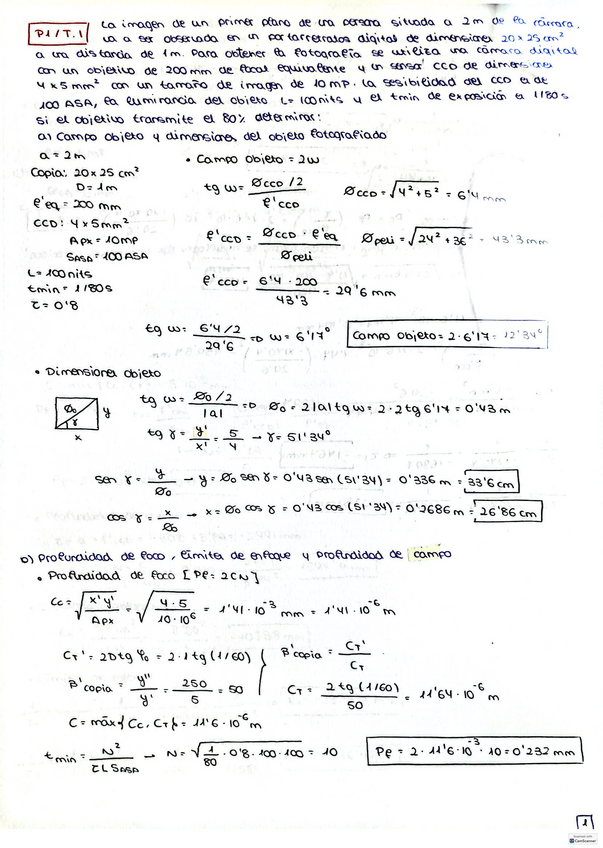 P1/T.1
La imagen de un primer plano de una persona situada a 2m de la cámara,
va a ser observada en un portarretratos digital de dimensiones 20x25 cm²
a una distancia de 1m. Para obtener la fotografía se utiliza una cámara digital
con un objetivo de 200mm de focal equivalente y un sensor CCD de dimensiones
4x5mm² con un tamaño de imagen de 10MP. La sesibilidad del CCD es de
100 ASA, la luminancia del objeto L=100nits y el tmin de exposición a 1/80s
si el objetivo transmite el 80% determinar:
a) Campo objeto y dimensiones del objeto fotografiado
a = 2m
• Campo objeto = 2w
Copia: 20x25 cm²
D=1m
tg w = (Øccd/2)/(f'ccd)
Øccd = √(4²+5²) = 6'4 mm
f'eq = 200 mm
CCD: 4x5mm²
Apx = 10MP
SASA = 100 ASA
f'ccd = (Øccd · f'eq)/(Øpeli)
Øpeli = √(24²+36²) = 43'3 mm
L = 100 nits
tmin = 1/80s
τ = 0'8
f'ccd = (6'4 · 200)/(43'3) = 29'6 mm
tg w = (6'4/2)/(29'6) =D w = 6'17°
Campo objeto = 2·6'17 = 12'34°
• Dimensiones objeto
Øo
γ
y
x
tg w = (Øo/2)/|a| =D Øo = 2|a| tg w = 2·2 tg 6'17 = 0'43 m
tg γ = y'/x' = 5/4 → γ = 51'34°
sen γ = y/Øo → y = Øo sen γ = 0'43 sen (51'34) = 0'336 m = 33'6 cm
cos γ = x/Øo → x = Øo cos γ = 0'43 cos (51'34) = 0'2686 m = 26'86 cm
b) Profundidad de foco, límites de enfoque y profundidad de campo
• Profundidad de foco [Pf = 2CN]
Cc = √(x'y'/Apx) = √(4·5/10·10⁶) = 1'41·10⁻³ mm = 1'41·10⁻⁶ m
CT' = 2D tg φo = 2·1 tg (1/60)
β'copia = CT'/CT
β'copia = y''/y' = 250/5 = 50
CT = (2 tg (1/60))/50 = 11'64·10⁻⁶ m
C = máx{Cc, CT} = 11'6·10⁻⁶ m
tmin = N²/(τ L SASA) → N = √(1/80 · 0'8·100·100) = 10
Pf = 2·11'6·10⁻³·10 = 0'232 mm
1
CamScanner